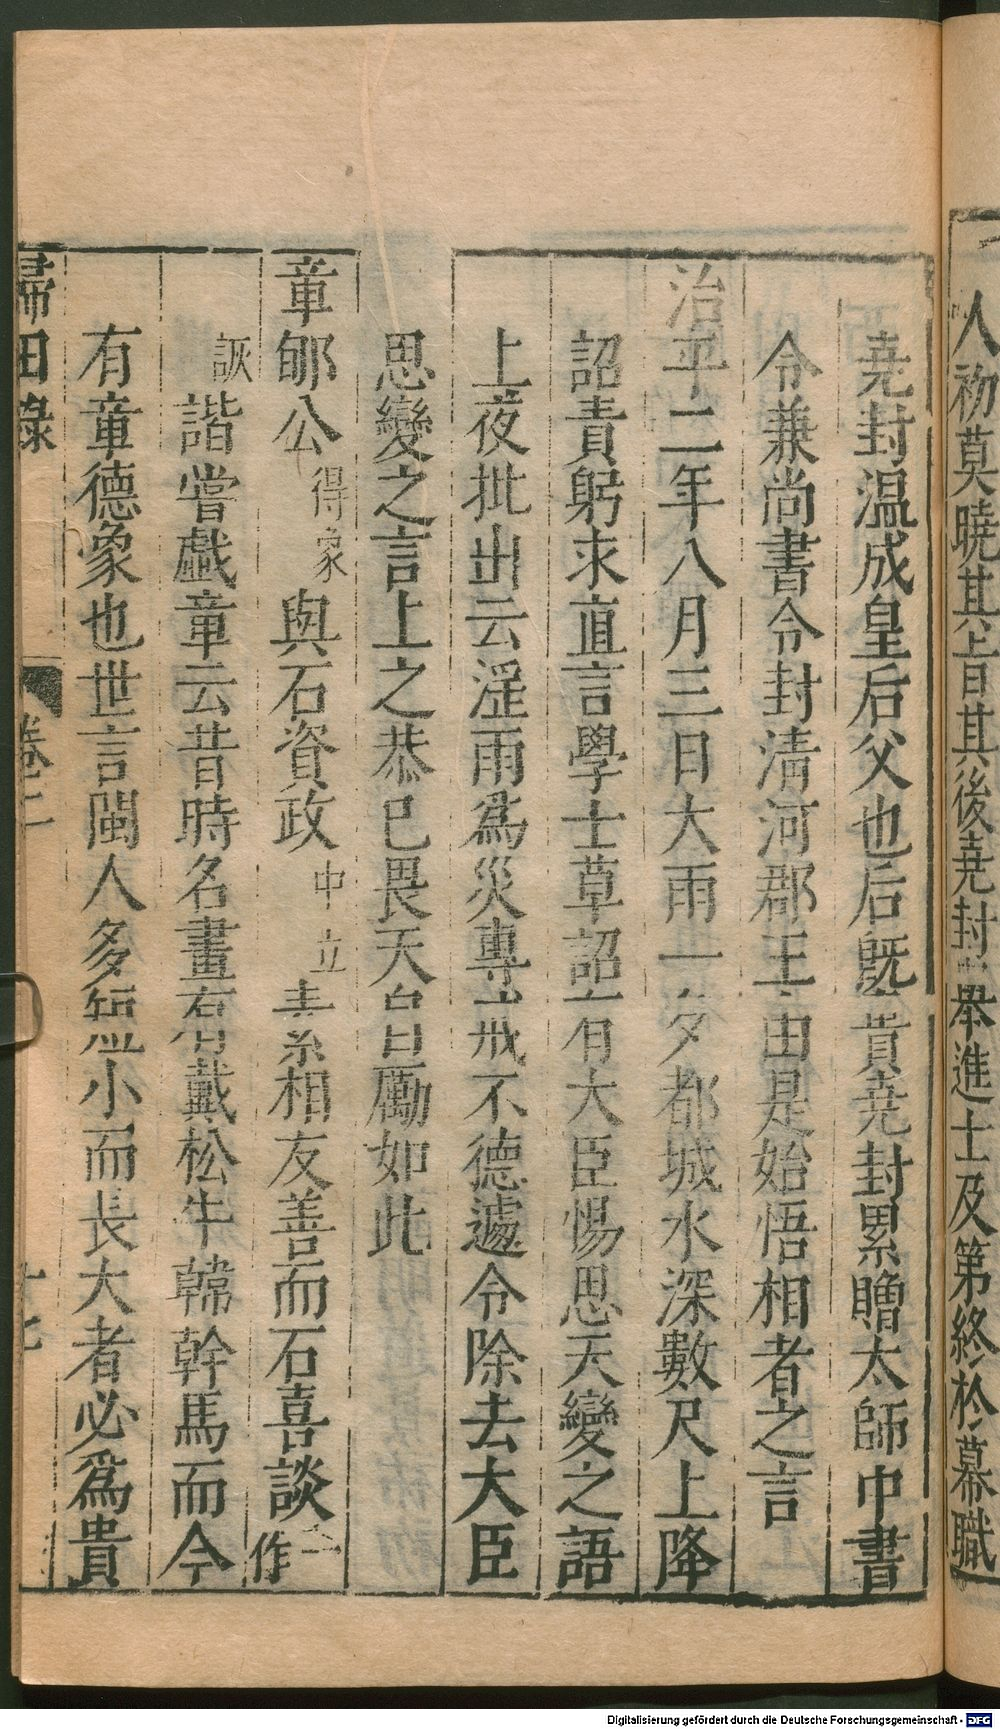 人初莫曉其旨其後堯封舉進士及第終於幕職
堯封溫成皇后父也后既貴堯封累贈太師中書
令兼尚書令封清河郡王由是始悟相者之言
治平二年八月三日大雨一夕都城水深數尺上降
詔責躬求直言學士草詔有大臣惕思天變之語
上夜批出云淫雨爲災專戒不德遽令除去大臣
思變之言上之恭已畏天自勵如此
章郇公得象與石資政中立素相友善而石喜談一作
詼諧嘗戲章云昔時名畫有戴松牛韓幹馬而今
有章德象也世言閩人多短小而長大者必爲貴
歸田錄 卷二 十七
Digitalisierung gefördert durch die Deutsche Forschungsgemeinschaft - DFG